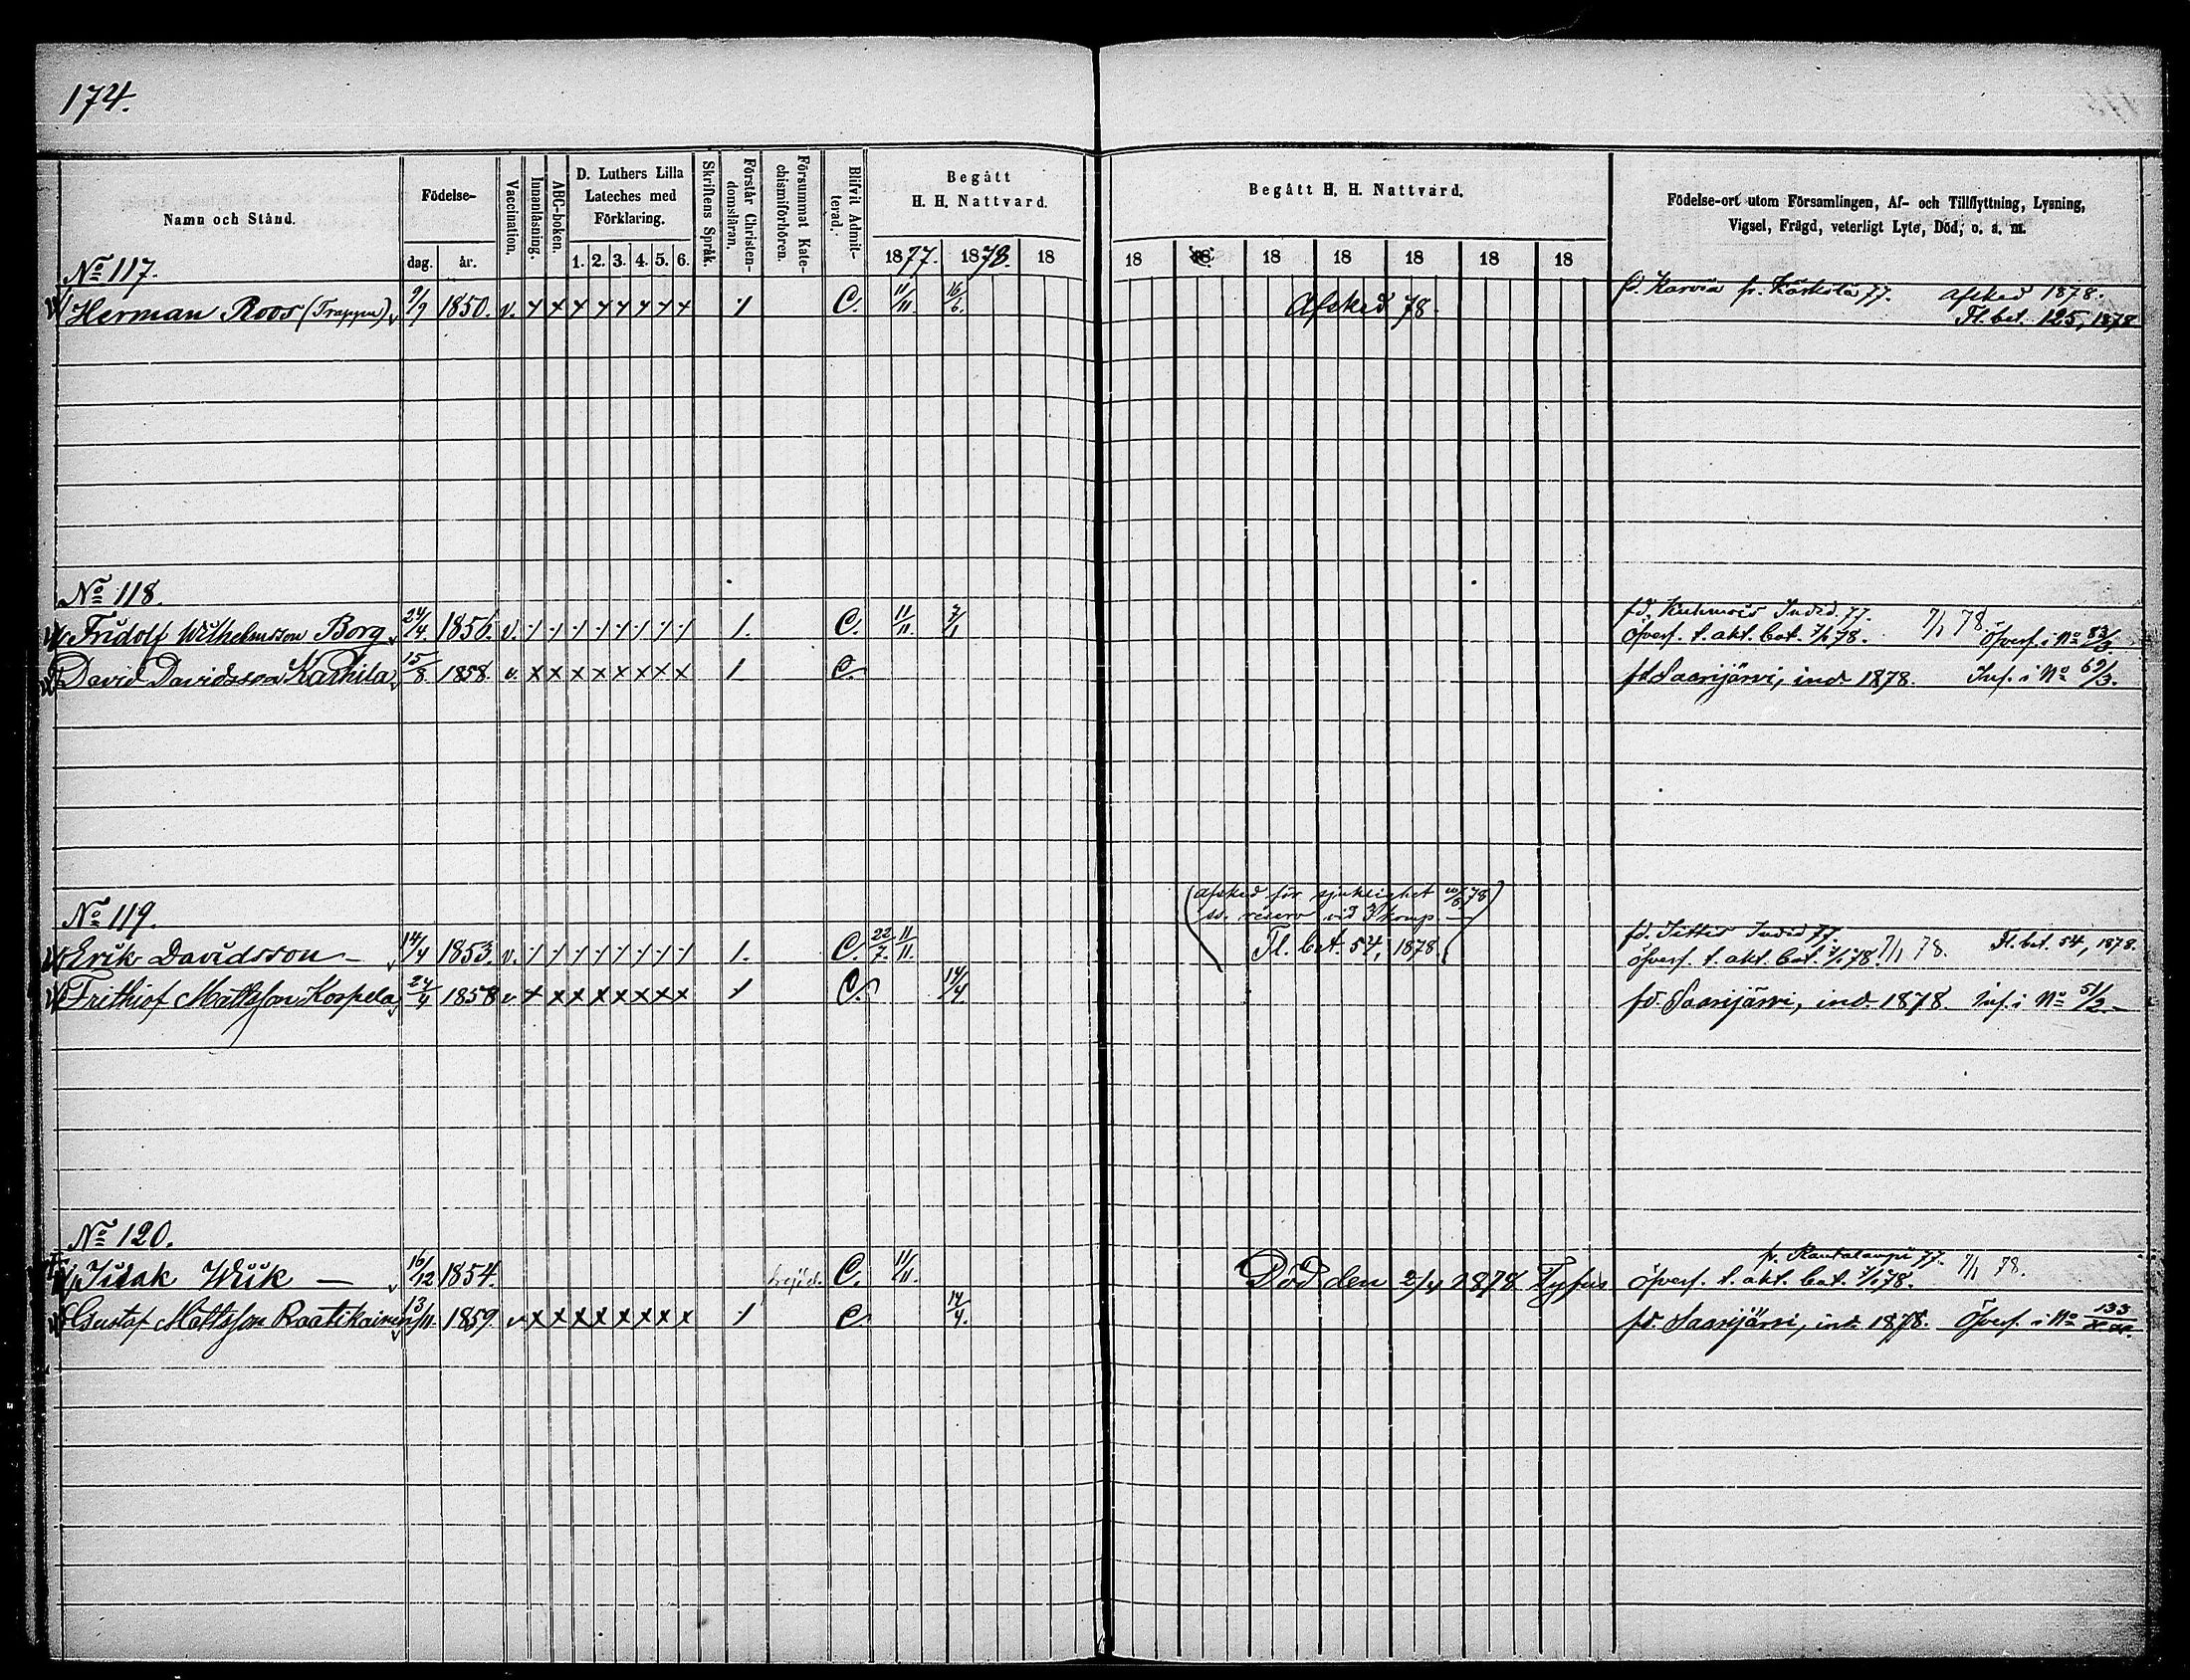 174.
Namn och Stånd.
Födelse-
dag. år.
Vaccination.
Innanläsning.
ABC-boken.
D. Luthers Lilla
Lateches med
Förklaring.
1. 2. 3. 4. 5. 6.
Skriftens Språk.
Förstår Christen-
domsläran.
Försummat Kate-
chismiförhören.
Blifvit Admit-
terad.
Begått
H. H. Nattvard.
1877. 1878. 18
Begått H. H. Nattvard.
18 18 18 18 18 18 18
Födelse-ort utom Församlingen, Af- och Tillflyttning, Lysning,
Vigsel, Frägd, veterligt Lyte, Död, o. a. m.
No 117.
Herman Roos (Trappu) 9/9 1850. v. x x x x x x x x / C. 11/11. 16/6. Afsked 78. fd. Karvia fr. Kärkölä 77. Afsked 1878.
Fl. bet. 125, 1878
No 118.
Fridolf Wilhelmsson Borg 24/4. 1856. v. C. 11/11. 7/1 fd. Kuhmois Indvd. 77.
Öfverf. t. akt. bat. 7/1 78. 7/1 78. Öfverf. i No 83/3.
David Davidsson Karhila 15/8. 1858. v. x x x x x x x x / C. fd. Saarijärvi, ind. 1878. Inf. i No 69/3.
No 119.
(afsked för sjuklighet 20/8 78)
ss. reserv vid 3 komp. —
Erik Davidsson — 14/4 1853. v. 1. C. 22/7. 11/11. Fl. bet. 54, 1878. fd. Jittis Indvd 77.
öfverf. t. akt. bat. 7/1 78. 7/1 78. Fl. bet. 54, 1878.
Frithiof Mattsson Kospela 24/4 1858 v. x x x x x x x x / C. 14/4 fd. Saarijärvi, ind. 1878 Inf. i No 51/2.
No 120.
Isak Wiik — 16/12 1854. C. 11/11. Död den 2/4 1878 Tyfus fr. Rautalampi 77.
Öfverf. t. akt. bat. 7/1 78. 7/1 78.
Gustaf Mattsson Raatikainen 13/11. 1859. v. x x x x x x x x / C. 14/4. fd. Saarijärvi, ind. 1878. Öfverf. i No 133